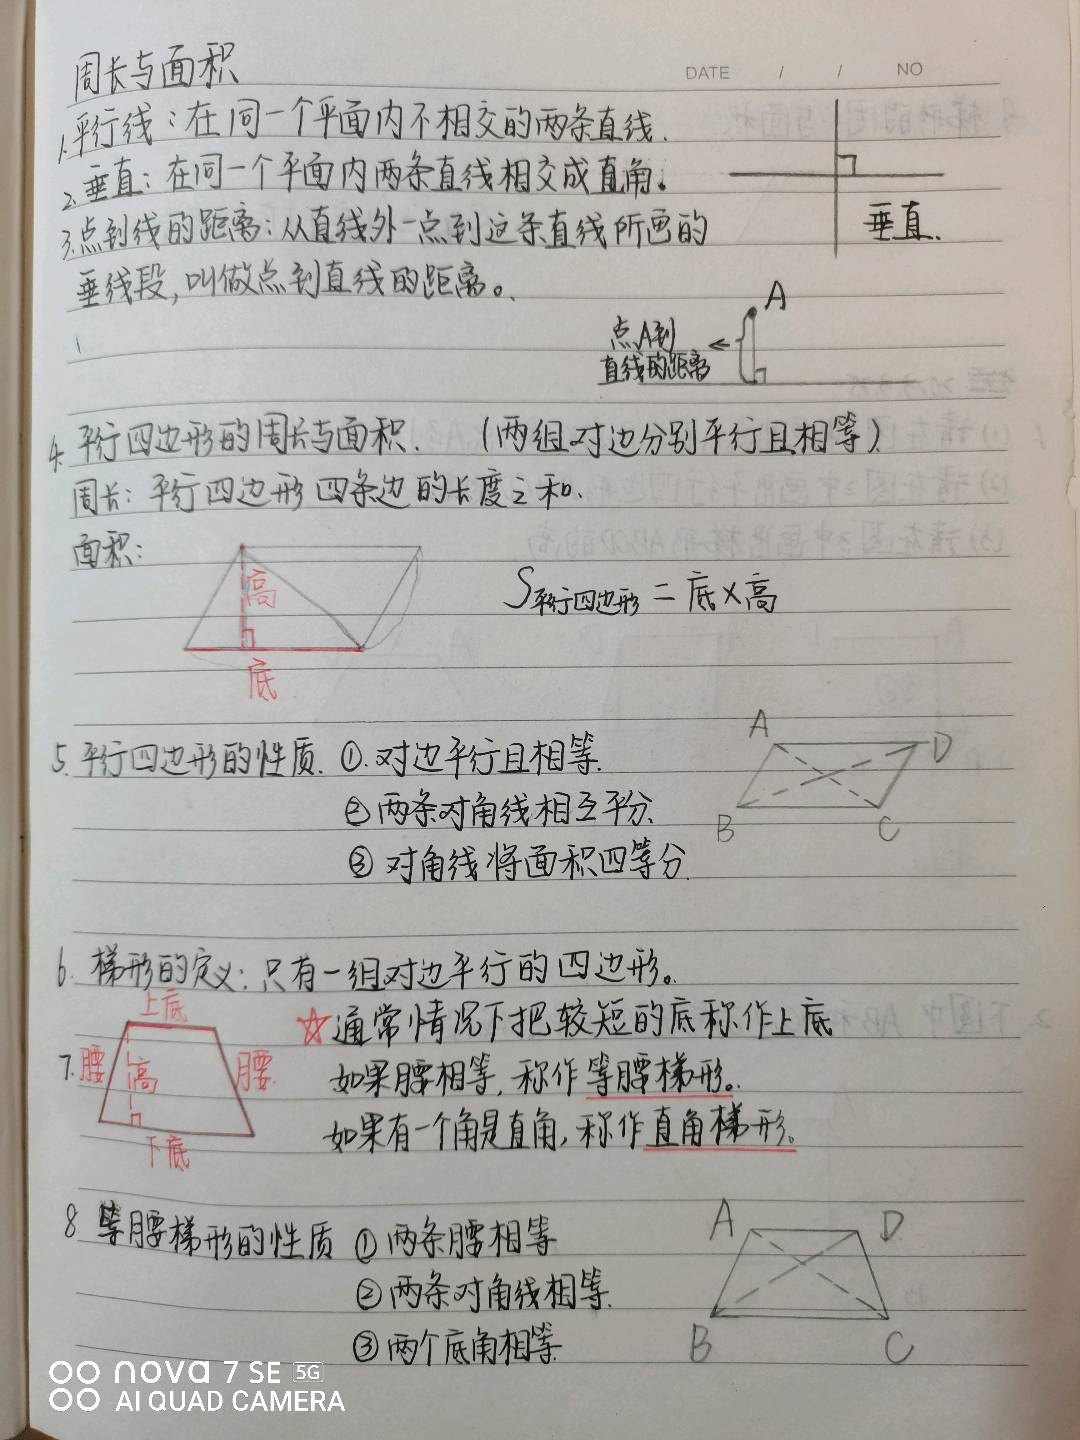 周长与面积
DATE / / NO
1.平行线:在同一个平面内不相交的两条直线.
2.垂直:在同一个平面内两条直线相交成直角。
垂直.
3.点到线的距离:从直线外一点到这条直线所画的
垂线段,叫做点到直线的距离。
A
点A到
直线的距离
4.平行四边形的周长与面积. (两组对边分别平行且相等)
周长:平行四边形四条边的长度之和.
面积:
高
底
S平行四边形=底×高
5.平行四边形的性质. ①.对边平行且相等.
②两条对角线相互平分.
③对角线将面积四等分.
A
D
B
C
6.梯形的定义:只有一组对边平行的四边形。
上底
☆通常情况下把较短的底称作上底
7.腰 高 腰
如果腰相等,称作等腰梯形。
如果有一个角是直角,称作直角梯形。
下底
8 等腰梯形的性质 ①两条腰相等
②两条对角线相等.
③两个底角相等.
A
D
B
C
nova 7 SE 5G
AI QUAD CAMERA